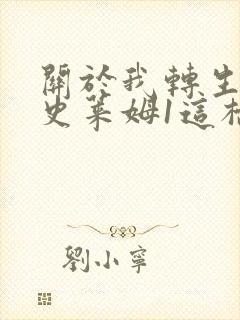 關於我轉生
史萊姆1這
劉小寧